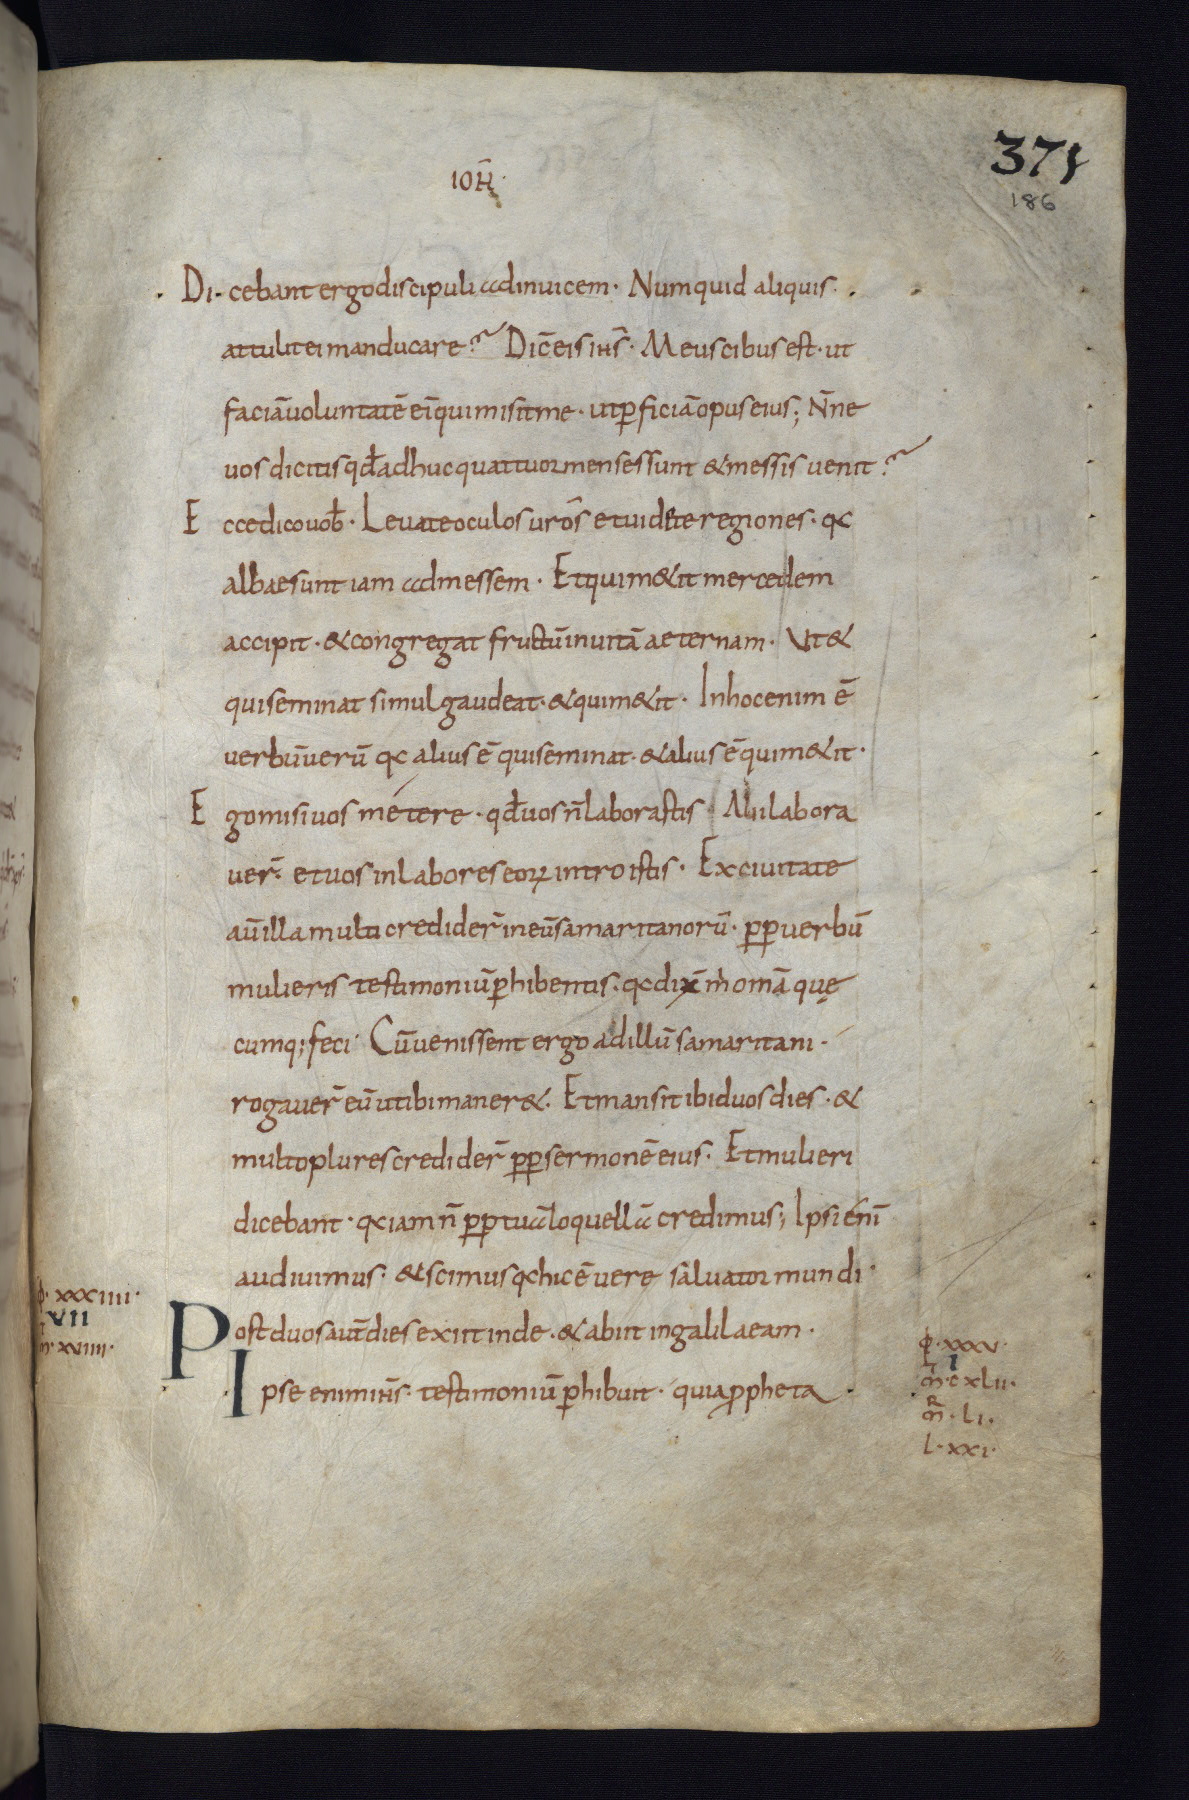 371
186
IOH̄·
Di·cebant ergo discipuli adinuicem · Numquid aliquis
attulit ei manducare? Dic̄ eis ihs̄ · Meus cibus est · ut
faciā uoluntatē eī qui misit me · ut ꝑficiā opus eius; N̄ne
uos dicitis qđ adhuc quattuor menses sunt & messis uenit?
Ecce dico uob̄ · Leuate oculos ur̄os et uidete regiones · qc
albae sunt iam ad messem · Et qui m&it mercedem
accipit · & congregat fructū in uitā aeternam · Ut &
qui seminat simul gaudeat · & qui m&it · In hoc enim ē
uerbū uerū qc alius ē qui seminat · & alius ē qui m&it ·
Ego misi uos métere · qđ uos n̄ laborastis · Alii labora
uer̄ et uos in labores eoꝝ introistis · Ex ciuitate
aū illa multi crediderr̄ in eū samaritanorū · ꝓp uerbū
mulieris testimoniū ꝑhibentis; qc dix̄ m omā quę
cumq; feci · Cū uenissent ergo ad illū samaritani ·
rogauer̄ eū ut ibi maner& · Et mansit ibi duos dies · &
multo plures credider̄ ꝓp sermonē eius · Et mulieri
dicebant · qc iam n̄ ꝓp tuā loquellā credimus; Ipsi énī
audiuimus · & scimus qc hic ē uere saluator mundi ·
Post duos aut̄ dies exiit inde · & abiit in galilaeam ·
Ipse enim ihs̄ · testimoniū ꝑhibuit · quia ꝓpheta
· xxxiiii ·
VII
m̄ · xviiii ·
· xxxv ·
I
m̄ · cxlii ·
m̄ʀ · li ·
l · xxi ·